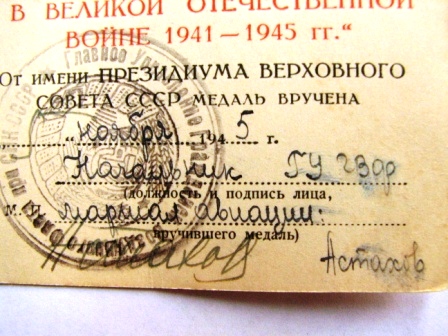 В ВЕЛИКОЙ ОТЕЧЕСТВЕННОЙ
ВОЙНЕ 1941—1945 гг.“
От имени ПРЕЗИДИУМА ВЕРХОВНОГО
СОВЕТА СССР МЕДАЛЬ ВРУЧЕНА
„ ноября 1945 г.
Начальник ГУ ГВФ
(должность и подпись лица,
М. П. маршал авиации
вручившего медаль)
Астахов
Главное Управление
при СНК СССР